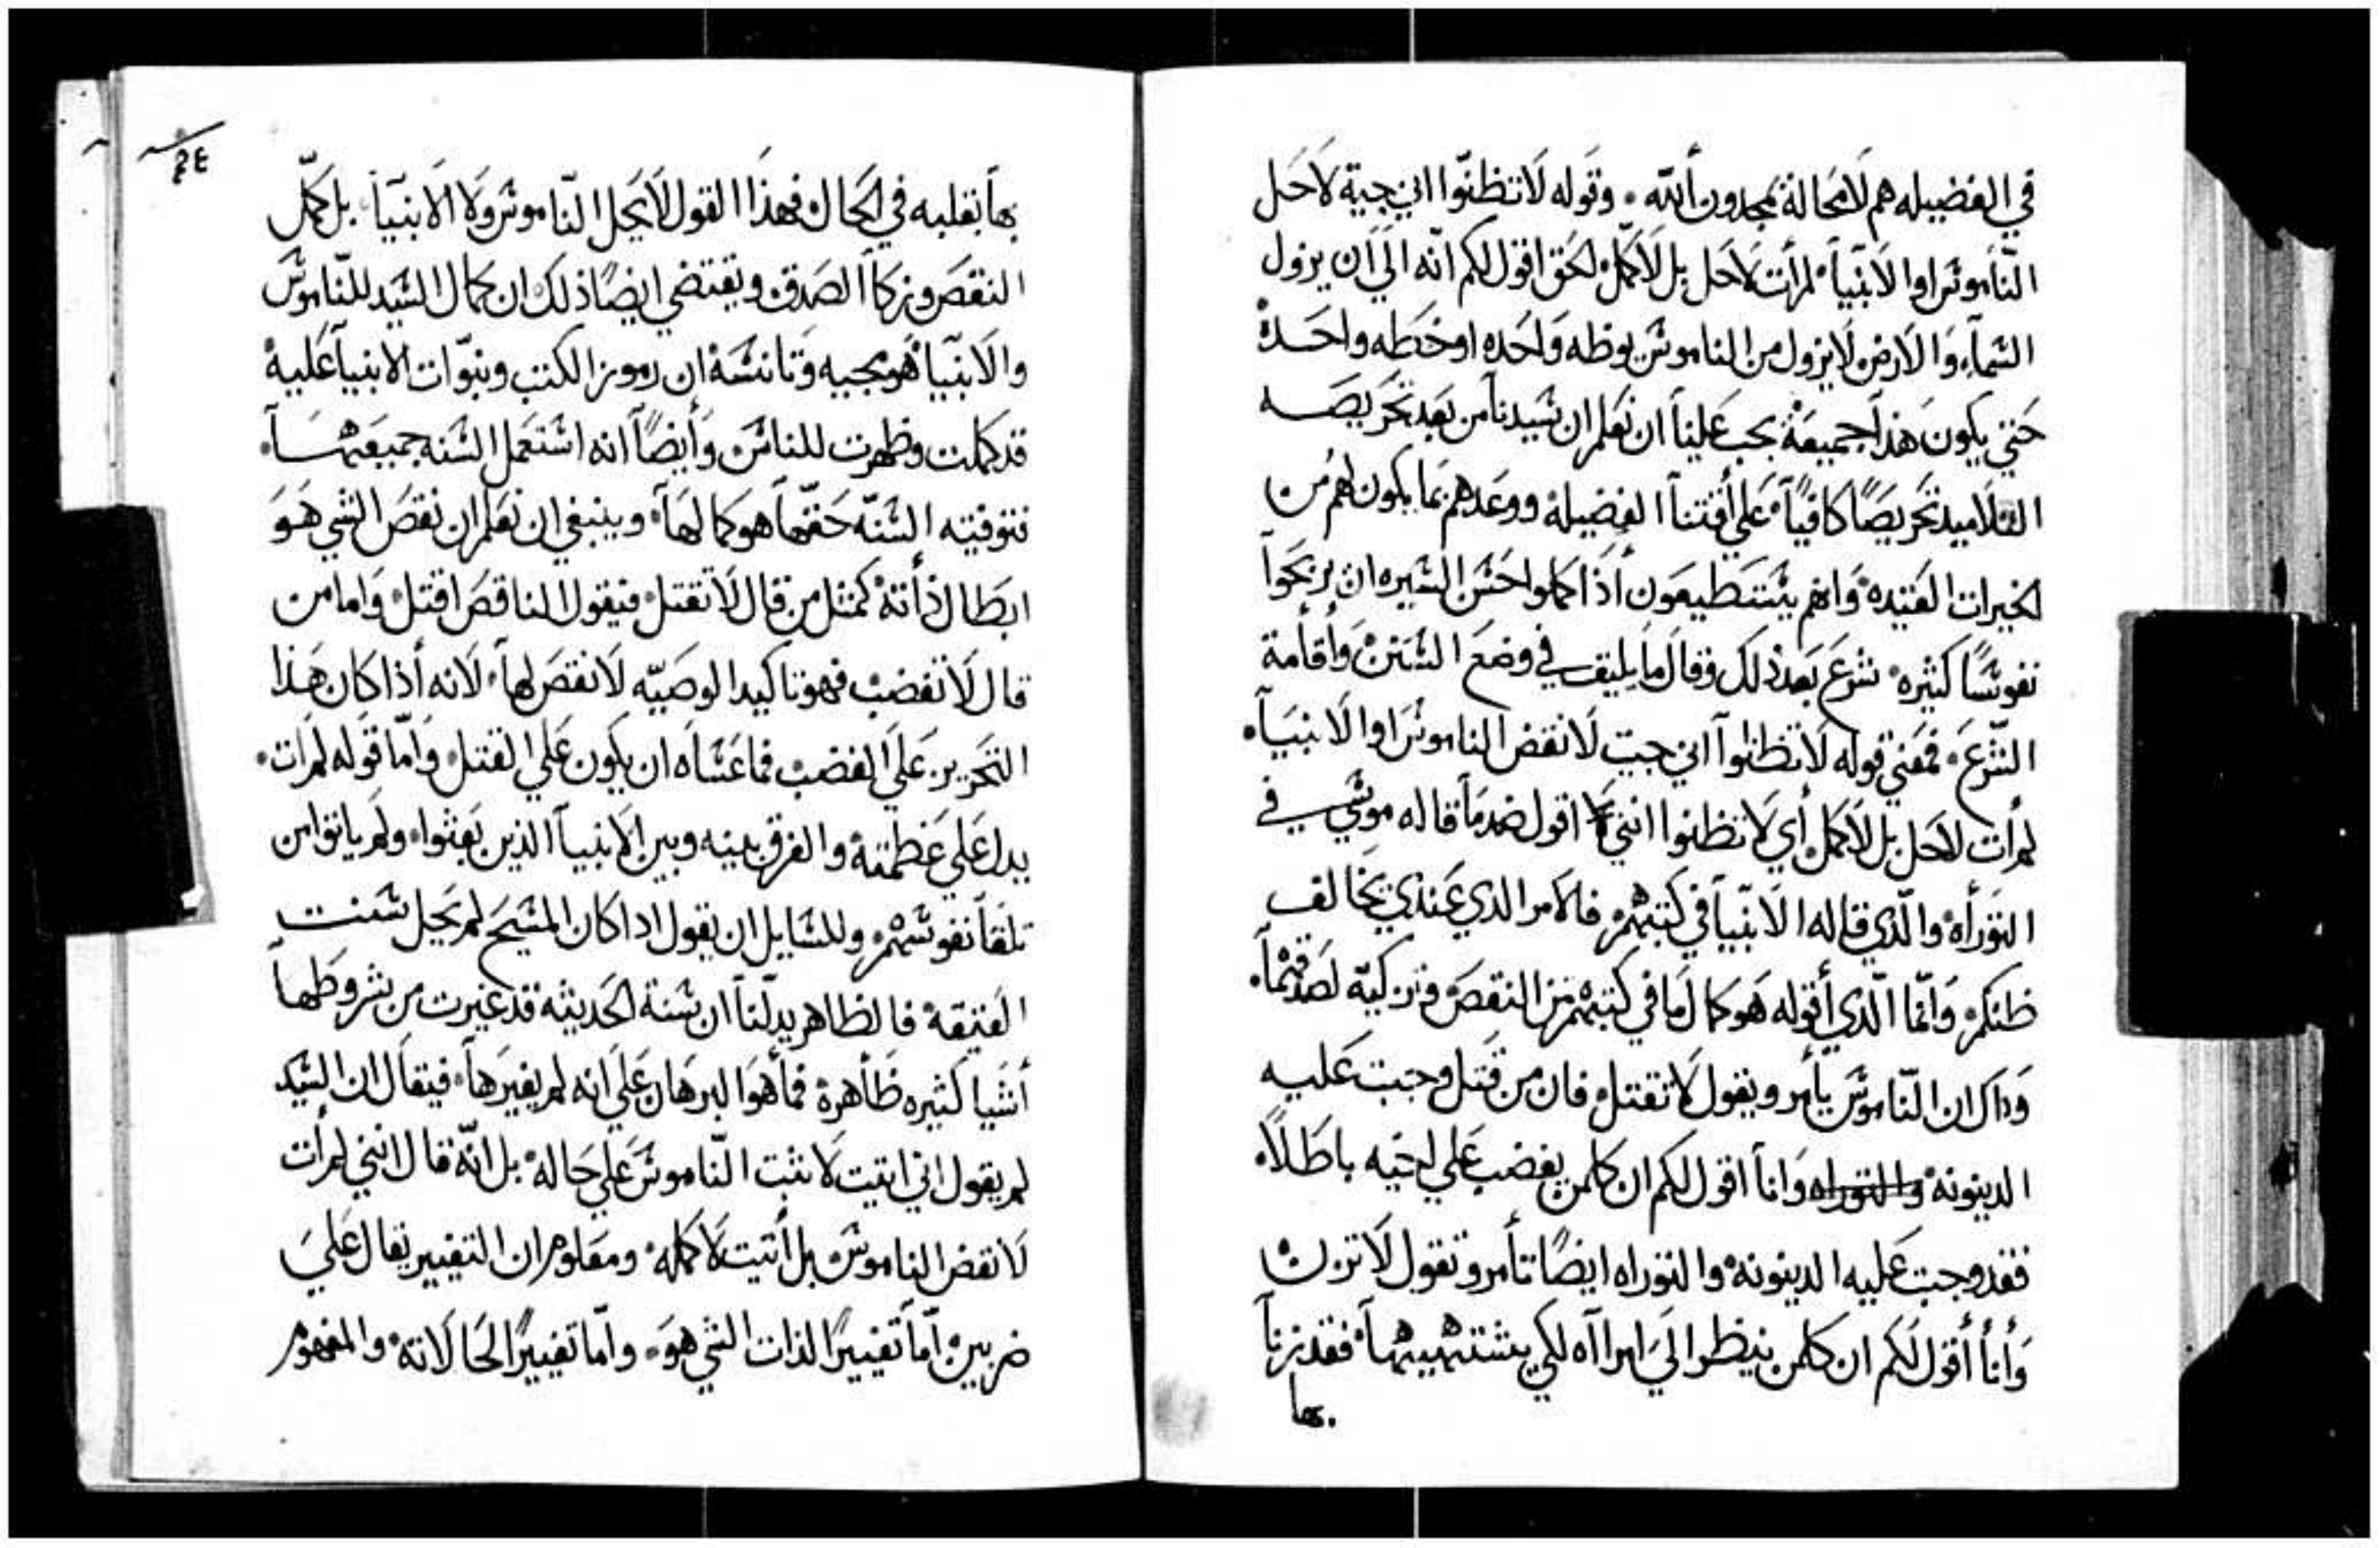 في الفضيله هم لامحالة يمجدون ألله . وقوله لاتظنوا اني جية لاحل
الناموس اوا لانبيآ لمرأت لاحل بل لأكمل لحق اقول لكم انه الي أن يزول
السمآء والارض لايزول من الناموس يوظه واحده اوخطه واحدة
حتي يكون هذا جميعة يجب علينا ان نعلم ان سيدنا من بعد تحريصه
التلاميد تحريصًا كافيآ علي أقتنآ الفضيلة ووعدهم بما يكون لهم من
الخيرات العتيده وانهم يستطيعون أذا كملوا حسن السيره ان يربحوآ
نفوسًا كثيره شرع بعد ذلك وقال ما يليق في وضع السنن وأقامة
الشرع فمعني قوله لاتظنوآ اني جيت لانقض الناموس اوا لانبيآ
لمرأت لاحل بل لأكمل أي لا تظنوا انني اقول ضد مآ قاله موسي في
التورأه والذي قاله الانبيآ في كتبهم فالامر الذي عندي يخالف
ظنكم وانما الذي أقوله هو كمال مافي كتبهم من النقص وتزكيه لصدقهمآ
وداك ان الناموس يأمر ويقول لا تقتل فان من قتل وجبت عليه
الدينونة والتوراه وانآ اقول لكم ان كلمن يغضب علي اخيه باطلاً
فقد وجبت عليه الدينونه والتوراه ايضًا تأمر وتقول لا تزن
وأنآ أقول لكم ان كلمن ينظر الي امرأه لكي يشتهيهآ فقد زنآ
بها
٤٤
بهآ بقلبه في الحال فهذا القول لايحل الناموس ولا الانبيآ بل كمل
النقص وزكآ الصدق ويقتضي ايضًا ذلك ان كمال السيد للناموس
والانبيآ هو مجيه وتانسه ان رموز الكتب ونبوات الانبيآ عليه
قد كملت وظهرت للناس وأيضًا انه استعمل السنه جميعهآ
فتوفيته السنه حقهآ هو كمالهآ وينبغي ان نعلم ان نقص الشي هو
ابطال ذأته كمثل من قال لا تقتل فيقول الناقص اقتل وامامن
قال لا تغضب فهو تاكيد الوصيه لانقص لهآ لانه أذا كان هذا
التحرير علي الغضب فما عساه ان يكون علي القتل وأما قوله لمرات
يدل علي عظمته والفرق بينه وبين الانبيآ الذين بعثوا ولم ياتوا من
تلقآ نفوسهم وللسايل ان يقول اداكان المسيح لم يحل سنت
العتيقة فالظاهر يدلنآ ان سنة الحديثه قد غيرت من شروطهآ
أشيا كثيره ظأهرة فمأهوا البرهان علي انه لم يغيرهآ فيقال ان السيد
لم يقول اني اتيت لاثبت الناموس علي حاله بل انه قال انني لمرأت
لانقض الناموس بل أتيت لاكمله ومعلوم ان التغيير يقال علي
ضربين أمآ تغييرًا لذات الشي هو وأما تغييرًا لحالاته والمفهوم